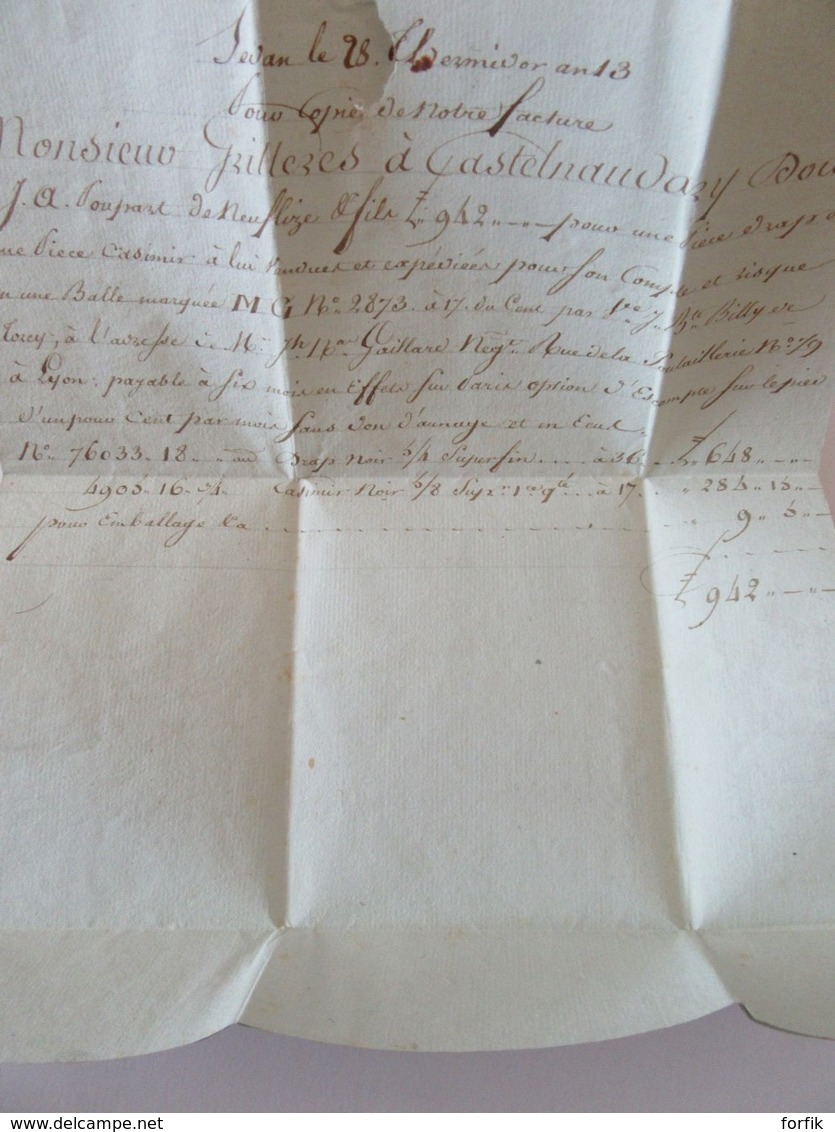 Sedan le 28. Thermidor an 13
Pour Copie de Notre facture
Monsieur Grilleres à Castelnaudary Doit
J. A. Poupart de Neuflize & fils £ 942 .. — .. — pour une Pièce drap
une Piece Casimir à lui Vendues et expédiées pour son Compte et risque
en une Balle marquée M G No. 2873. à 17. du Cent par Billy et
Torcy, à l'adresse de Mr. Jh. Gaillard Negt. Rue de la Poulaillerie No. 79
à Lyon; payable à Six mois en Effets sur Paris option d'Escompte sur le pied
d'un pour Cent par mois sans don d'aunage et en Ecus.
No. 76033. 18 .. .. au Drap Noir 5/4 Superfin .... à 36 .. £ 648 .. — .. —
4905. 16 .. 3/4. Casimir Noir 5/8 Supr. 1re qté .. à 17 .. .. 284. 15 .. —
pour Emballage &a ........ 9 .. 5 .. —
£ 942 .. — .. —
delcampe.net
forfik